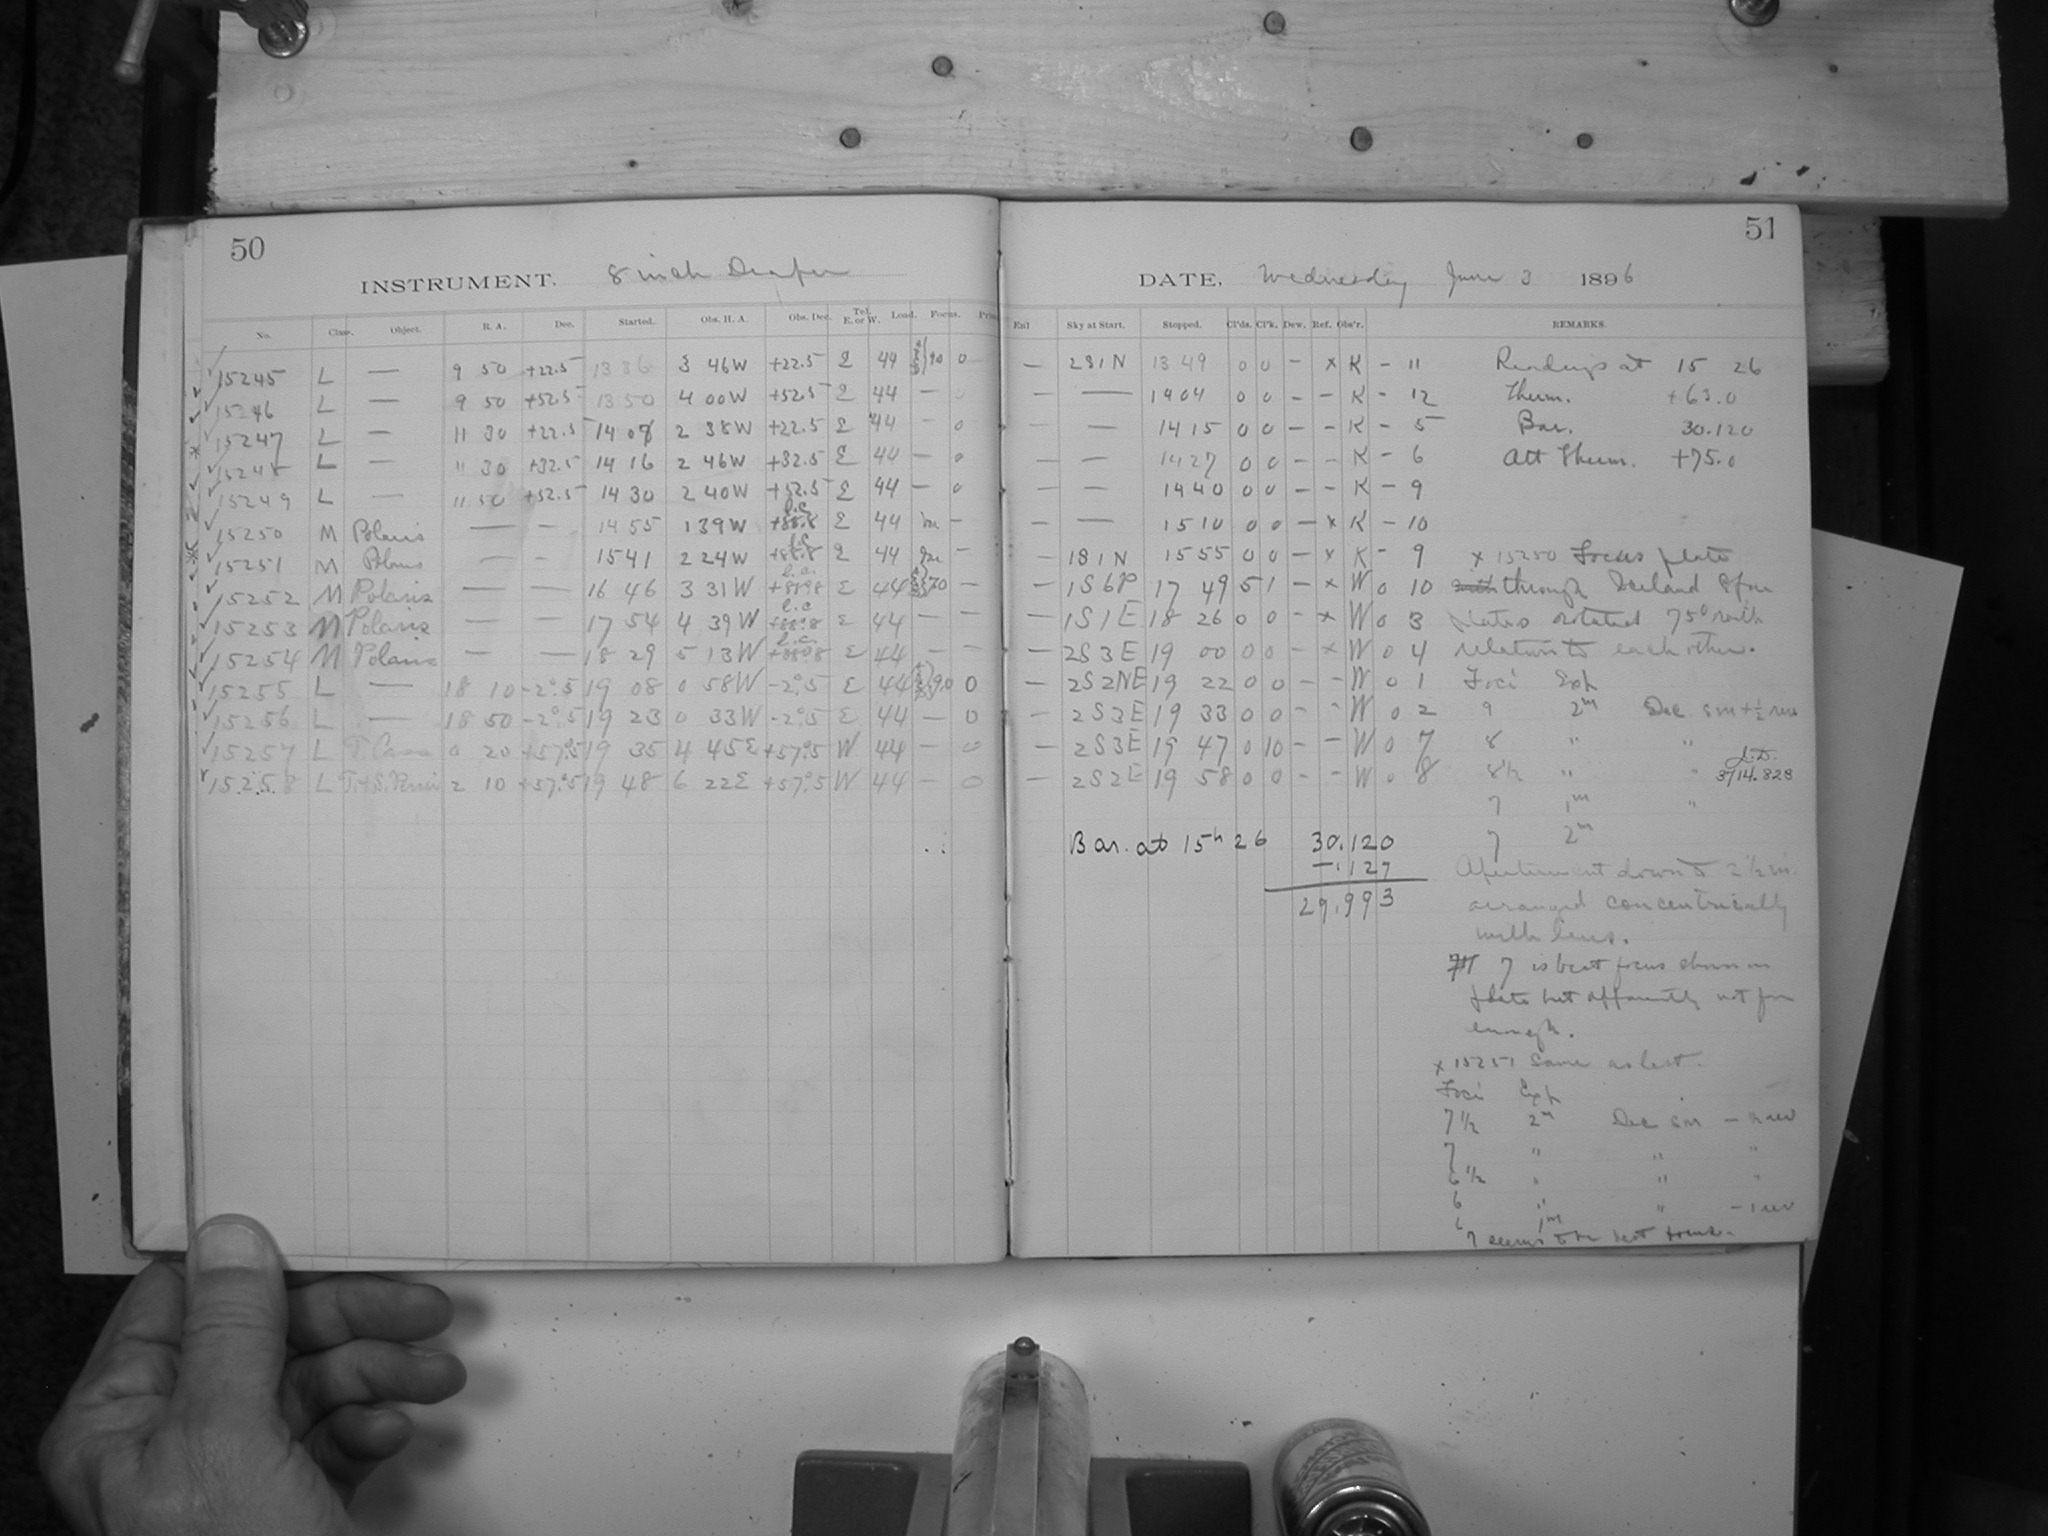 50
INSTRUMENT. 8 inch Draper
No. Class. Object. R. A. Dec. Started. Obs. H. A. Obs. Dec. Tel. E. or W. Load. Focus. Pris
15245 L — 9 50 +22.5 13 36 3 46W +22.5 E 44 90 0
15246 L — 9 50 +52.5 13 50 4 00W +52.5 E 44 — 0
15247 L — 11 30 +22.5 14 07 2 38W +22.5 E 44 — 0
15248 L — 11 30 +32.5 14 16 2 46W +32.5 E 44 — 0
15249 L — 11 50 +52.5 14 30 2 40W +52.5 E 44 — 0
15250 M Polaris — — 14 55 1 39W l.c. +88.8 E 44 —
15251 M Polaris — — 15 41 2 24W l.c. +88.8 E 44 —
15252 M Polaris — — 16 46 3 31W l.c. +88.8 E 44 70 —
15253 M Polaris — — 17 54 4 39W l.c. +88.8 E 44 — —
15254 M Polaris — — 18 29 5 13W l.c. +88.8 E 44 — —
15255 L — 18 10 -2°.5 19 08 0 58W -2°.5 E 44 90 0
15256 L — 18 50 -2°.5 19 23 0 33W -2°.5 E 44 — 0
15257 L T. Cass 0 20 +57°.5 19 35 4 45E +57°.5 W 44 — 0
15258 L T.+S. Persei 2 10 +57°.5 19 48 6 22E +57°.5 W 44 — 0
51
DATE, Wednesday June 3 1896
Enl Sky at Start. Stopped. Cl'ds. Cl'k. Dew. Ref. Obs'r. REMARKS.
— 2S1N 13 49 0 0 — x K - 11 Readings at 15 26
— — 1404 0 0 — — K - 12 Therm. +63.0
— — 14 15 0 0 — — K - 5 Bar. 30.120
— — 1427 0 0 — — K - 6 Att Therm. +75.0
— — 1440 0 0 — — K - 9
— — 1510 0 0 — x K - 10
— 1S1N 1555 0 0 — x K - 9 x 15250 Focus plate
— 1S6P 17 49 5 1 — x W 0 10 through Iceland Spar
— 1S1E 18 26 0 0 — x W 0 3 plates rotated 75° with
— 2S3E 19 00 0 0 — x W 0 4 relation to each other.
— 2S2NE 19 22 0 0 — — W 0 1 Foci Exp
— 2S3E 19 33 0 0 — — W 0 2 9 2m Dec sm + ½ rev
— 2S3E 19 47 0 10 — — W 0 7 8 " "
— 2S2E 19 58 0 0 — — W 0 8 8½ " " J.D. 3714.823
7 1m "
Bar. at 15h 26 30.120 7 2m
-.127
29.993
Aperture cut down to 2½ in.
arranged concentrically
with lens.
7 is best focus shown on
plate but apparently not far
enough.
x 15251 Same as last.
Foci Exp
7½ 2m Dec sm - ½ rev
7 " " "
6½ " " "
6 " " - 1 rev
6 1m
7 seems to be best focus.